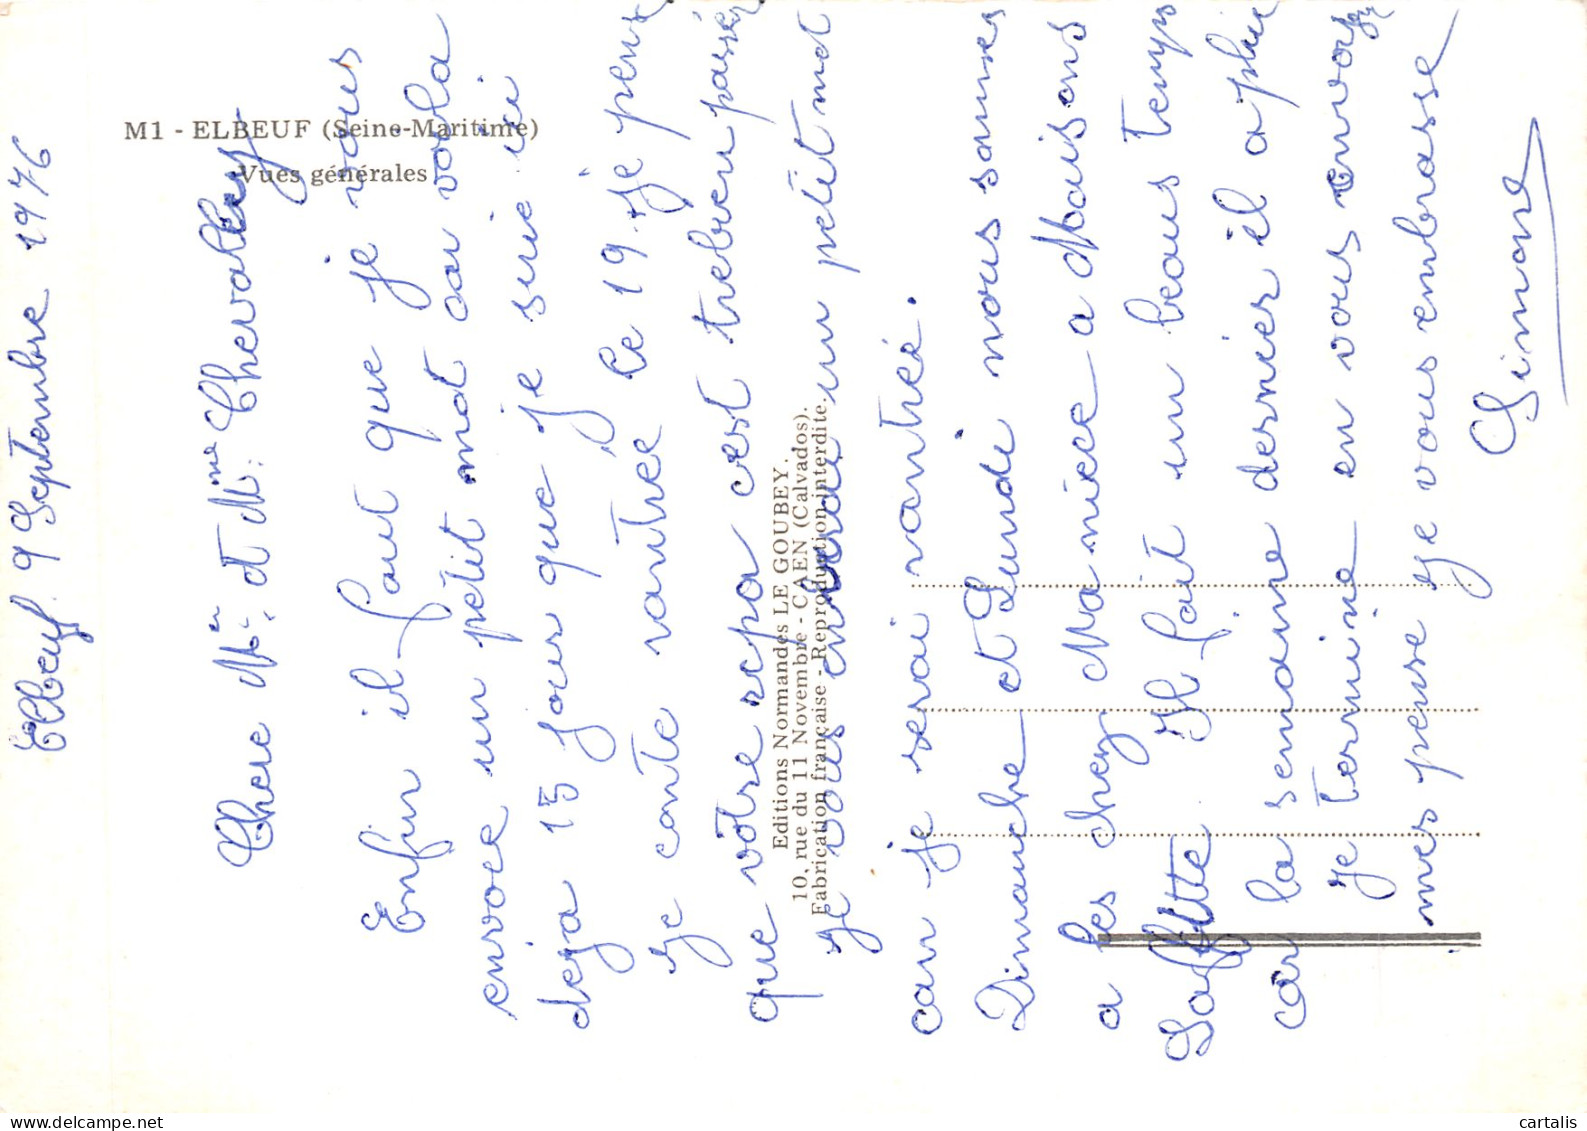 Elbeuf 9 Septembre 1976
M1 - ELBEUF (Seine-Maritime)
Vues générales
Chere Mr et Mme Chevalley
Enfin il faut que je vous
envoee un pètit mot car voila
deja 15 jour que je suie ici
je conte rantrée Le 19. je pense
que vôtre repa c'est trebien passée
je vous un petit mot
can je serai rantrée.
Dimanche et Lundi nous sommes
a les chez Ma niece a Maisons
Laffitte Il fait un beaus temps
car la semaine dernier il a plui
je termine en vous envoyz
mes pense je vous embrasse
Simone
Editions Normandes LE GOUBEY.
10, rue du 11 Novembre - CAEN (Calvados).
Fabrication française - Reproduction interdite.
www.delcampe.net
cartalis